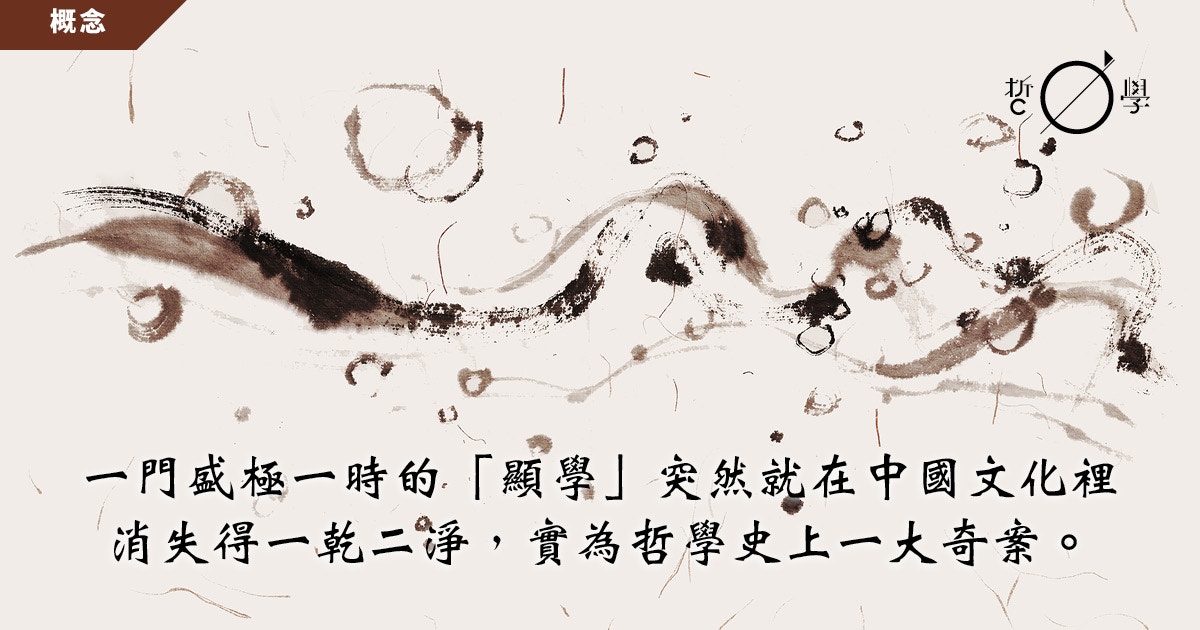 概念
哲學
一門盛極一時的「顯學」突然就在中國文化裡
消失得一乾二淨，實為哲學史上一大奇案。